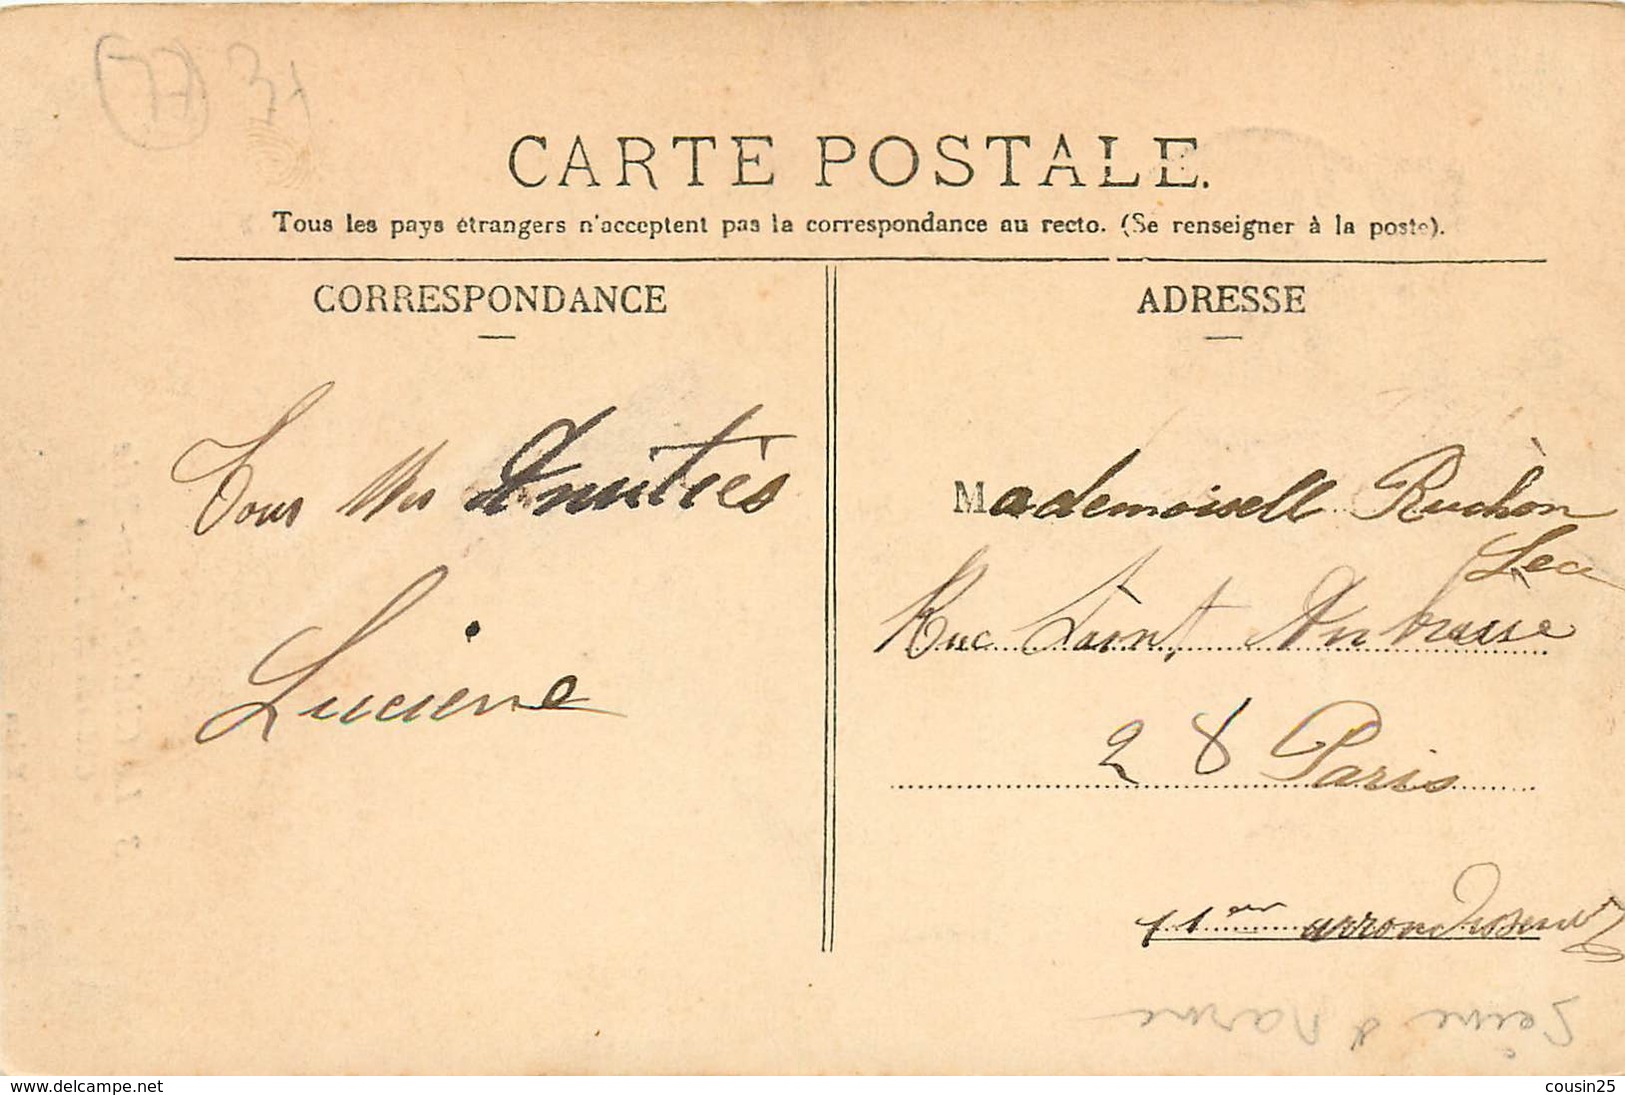 77 31
CARTE POSTALE.
Tous les pays étrangers n'acceptent pas la correspondance au recto. (Se renseigner à la poste).
CORRESPONDANCE
Tous Mes Amitiés
Luciene
ADRESSE
Mademoisell Ruchon
Lea
Rue Saint Ambroise
28 Paris
11em arrondissent
Seine & Marne
www.delcampe.net
cousin25